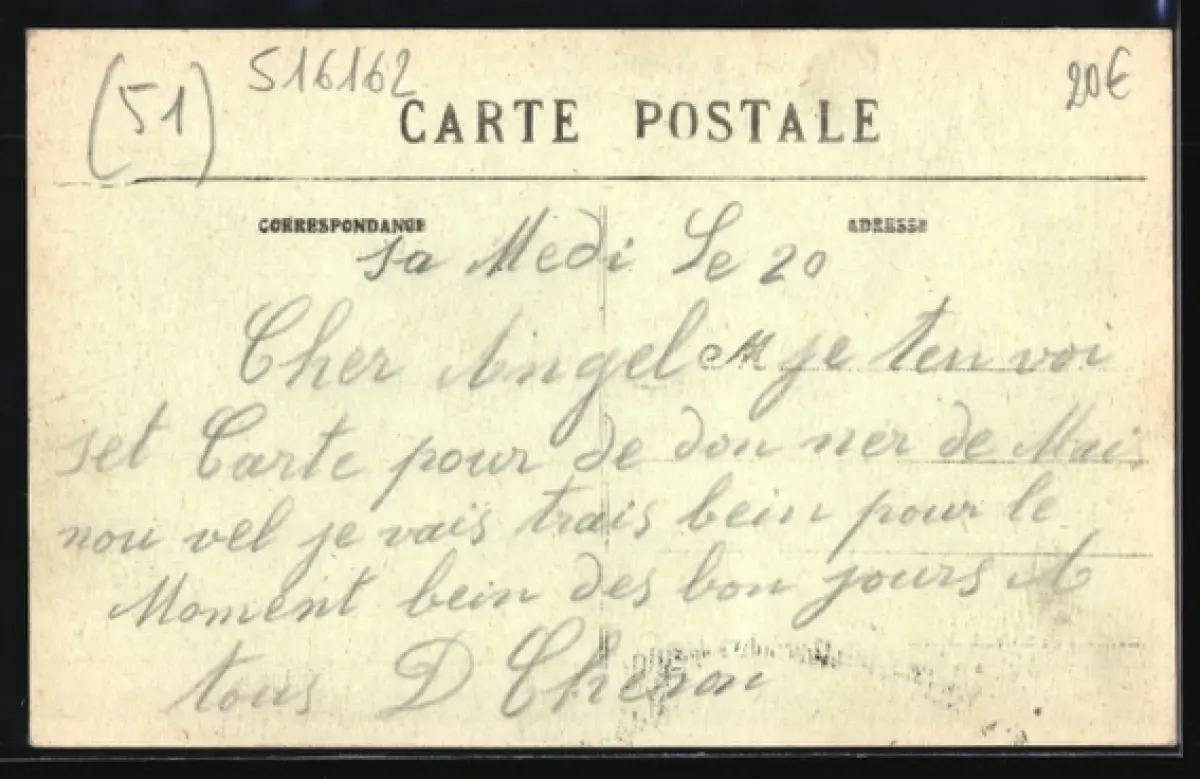 (51) 516162 20€
CARTE POSTALE
CORRESPONDANCE ADRESSE
sa Medi Le 20
Cher Angel je ten voi
set Carte pour de don ner de Mais
nou vel je vais trais bein pour le
Moment bein des bon jours A
tous D Cheron